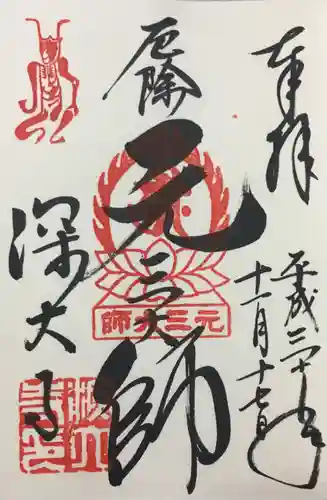 奉拝
平成二十九年
十一月十七日
厄除
元三大師
元三大師
深大寺